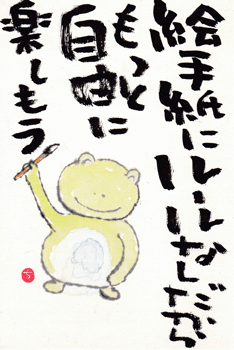 絵手紙にルールなしだから
もっと
自由に
楽しもう